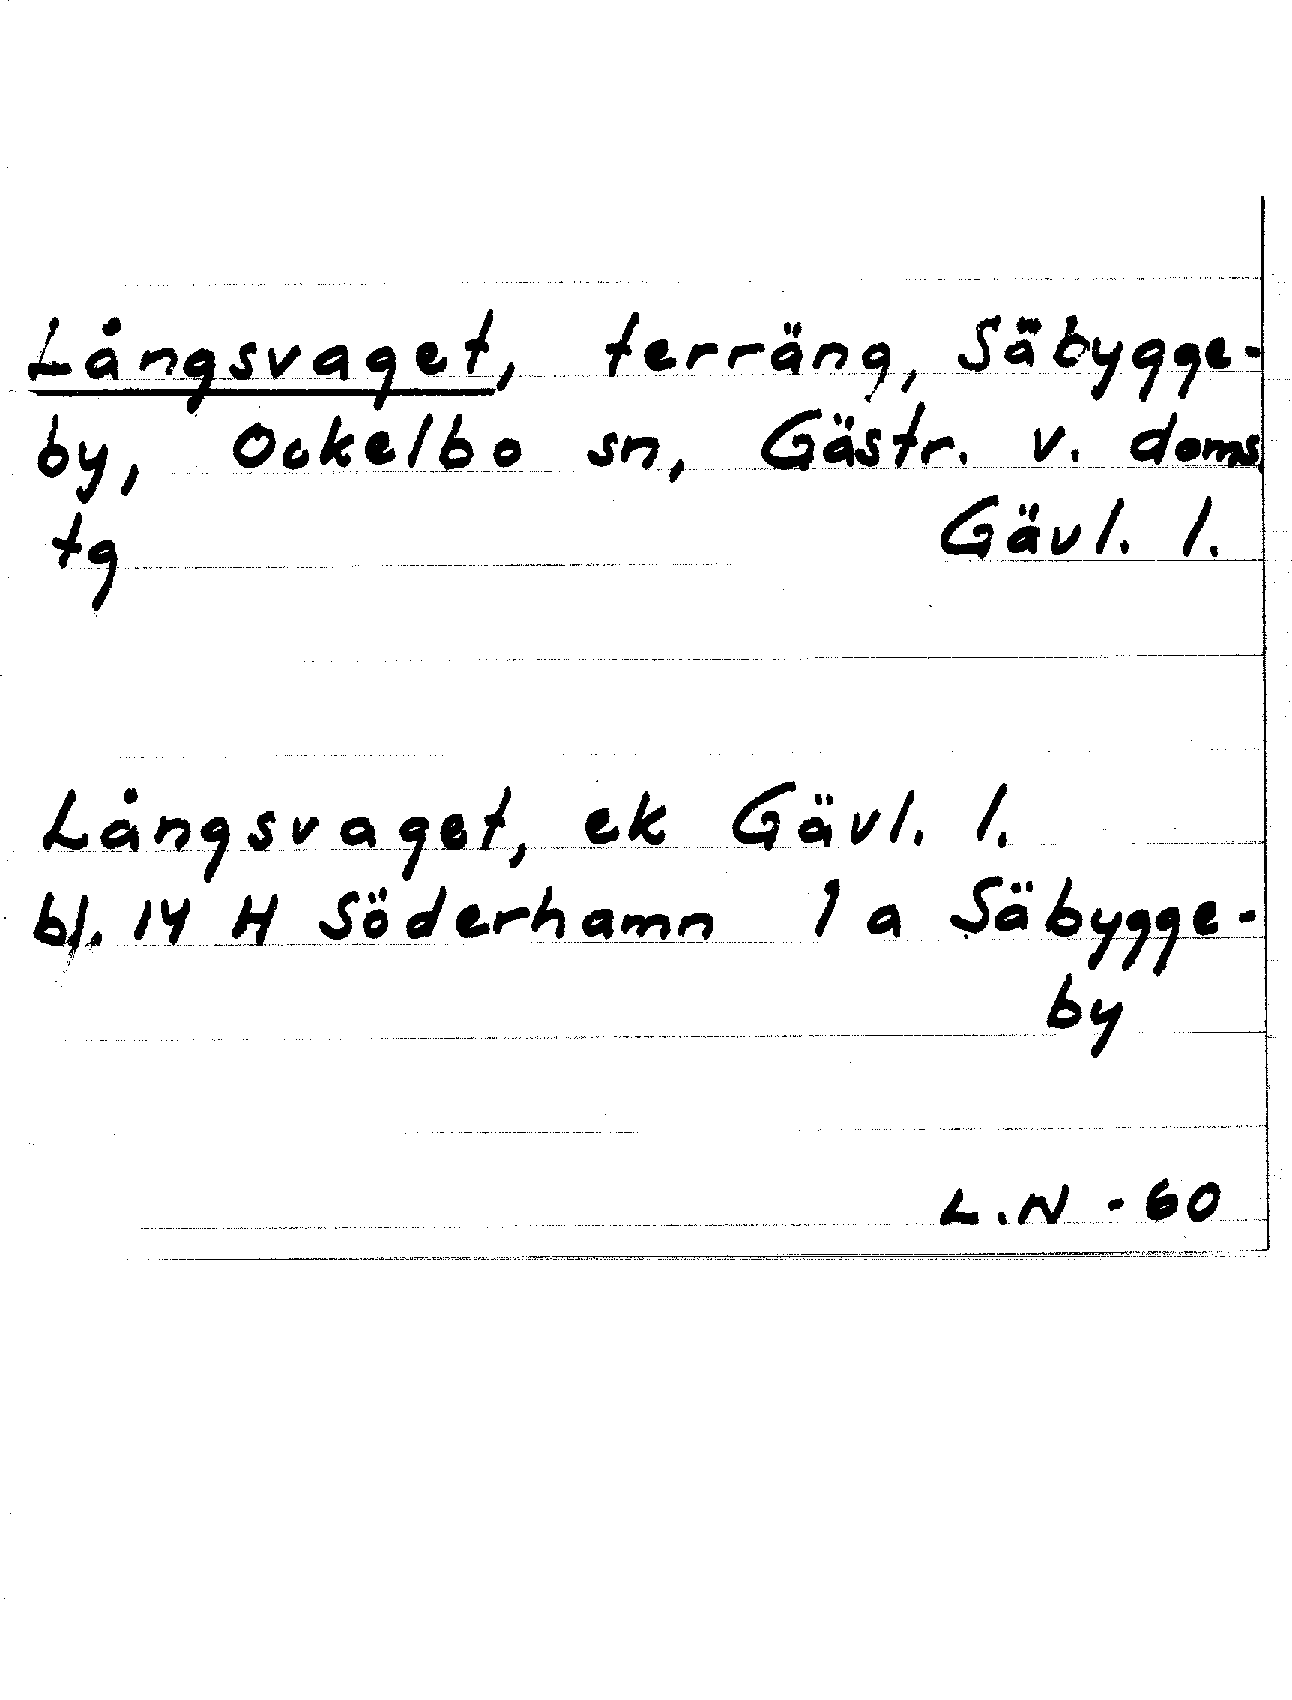 Långsvaget, terräng, Säbygge-
by, Ockelbo sn, Gästr. v. doms
tg Gävl. l.
Långsvaget, ek Gävl. l.
bl. 14 H Söderhamn 1 a Säbygge-
by
L.N - 60